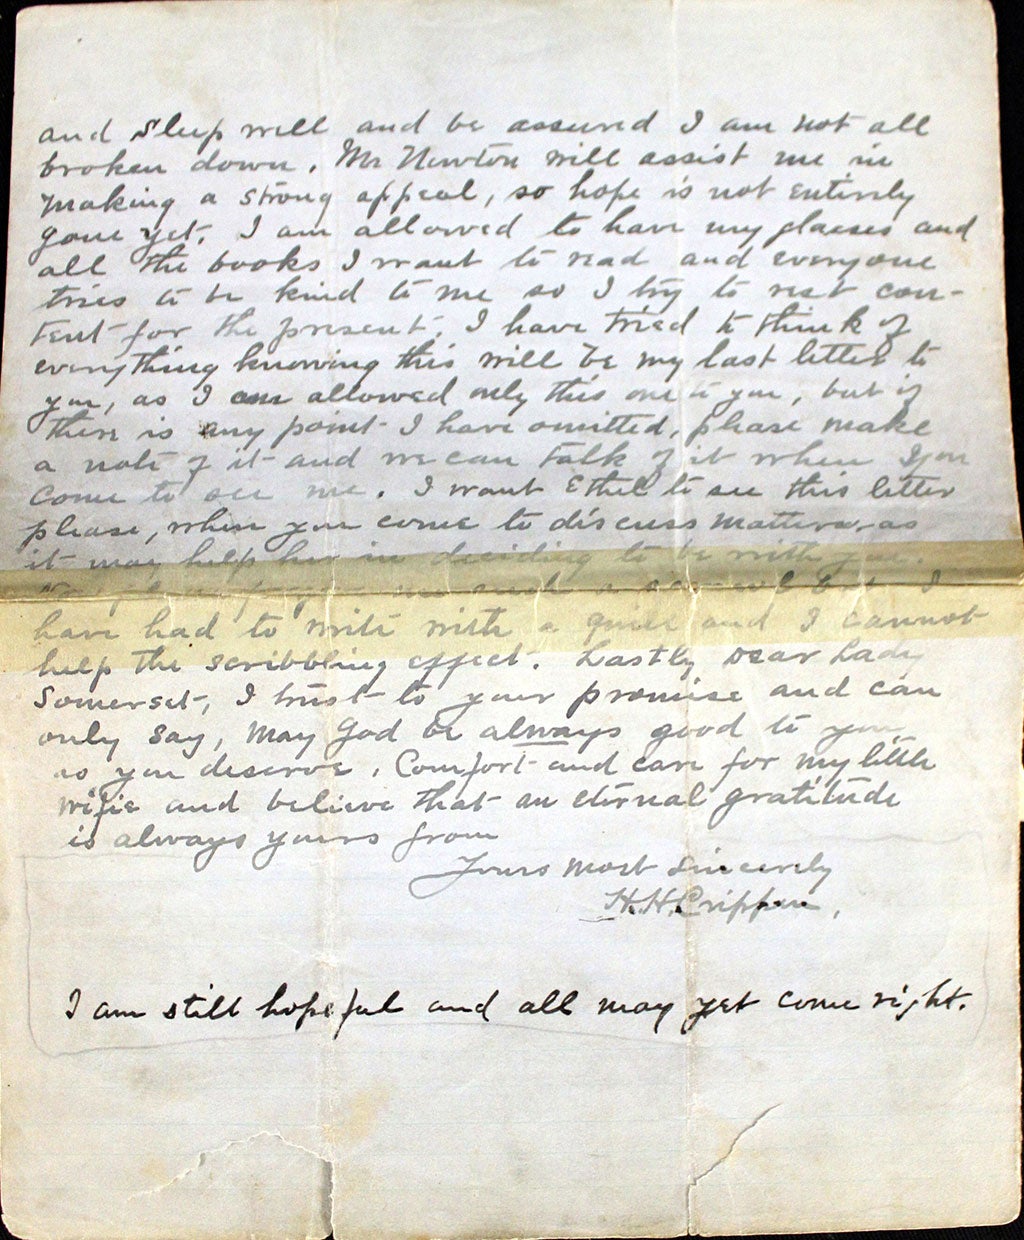 and sleep well and be assured I am not all
broken down. Mr Newton will assist me in
making a strong appeal, so hope is not entirely
gone yet. I am allowed to have my glasses and
all the books I want to read and everyone
tries to be kind to me so I try to rest con-
tent for the present. I have tried to think of
everything knowing this will be my last letter to
you, as I am allowed only this one to you, but if
there is any point I have omitted, please make
a note of it and we can talk of it when you
come to see me. I want Ethel to see this letter
please, when you come to discuss matters, as
it may help her in deciding to be with you.
forgive me such a but I
have had to write with a quill and I cannot
help the scribbling effect. Lastly Dear Lady
Somerset, I trust to your promise and can
only say, May God be always good to you
as you deserve. Comfort and care for my little
wifie and believe that an eternal gratitude
is always yours from
Yours most sincerely
H.H.Crippen.
I am still hopeful and all may yet come right.